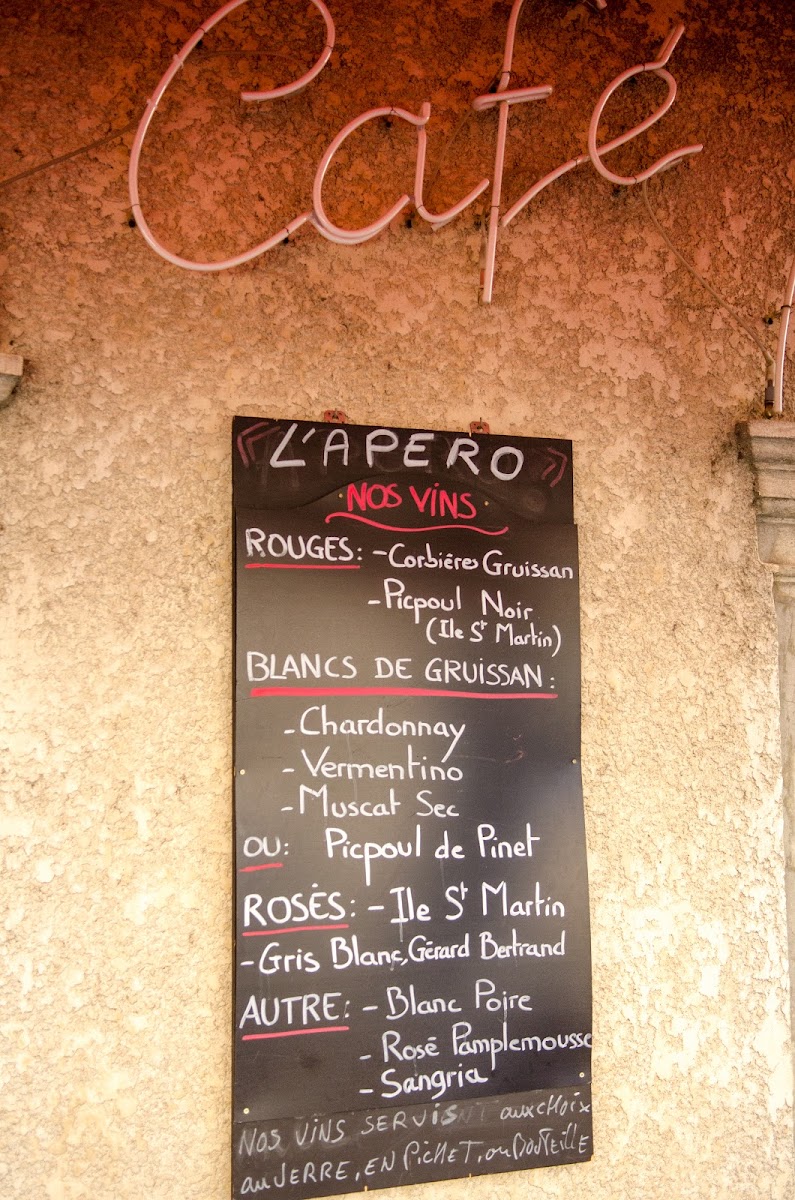 Café
« L'APERO »
NOS VINS
ROUGES: - Corbières Gruissan
- Picpoul Noir
(Ile St Martin)
BLANCS DE GRUISSAN:
- Chardonnay
- Vermentino
- Muscat Sec
OU: Picpoul de Pinet
ROSÈS: - Ile St Martin
- Gris Blanc, Gérard Bertrand
AUTRE: - Blanc Poire
- Rosé Pamplemousse
- Sangria
NOS VINS SERVIS aux CHOIX
au VERRE, EN PICHET, ou BOUTEILLE